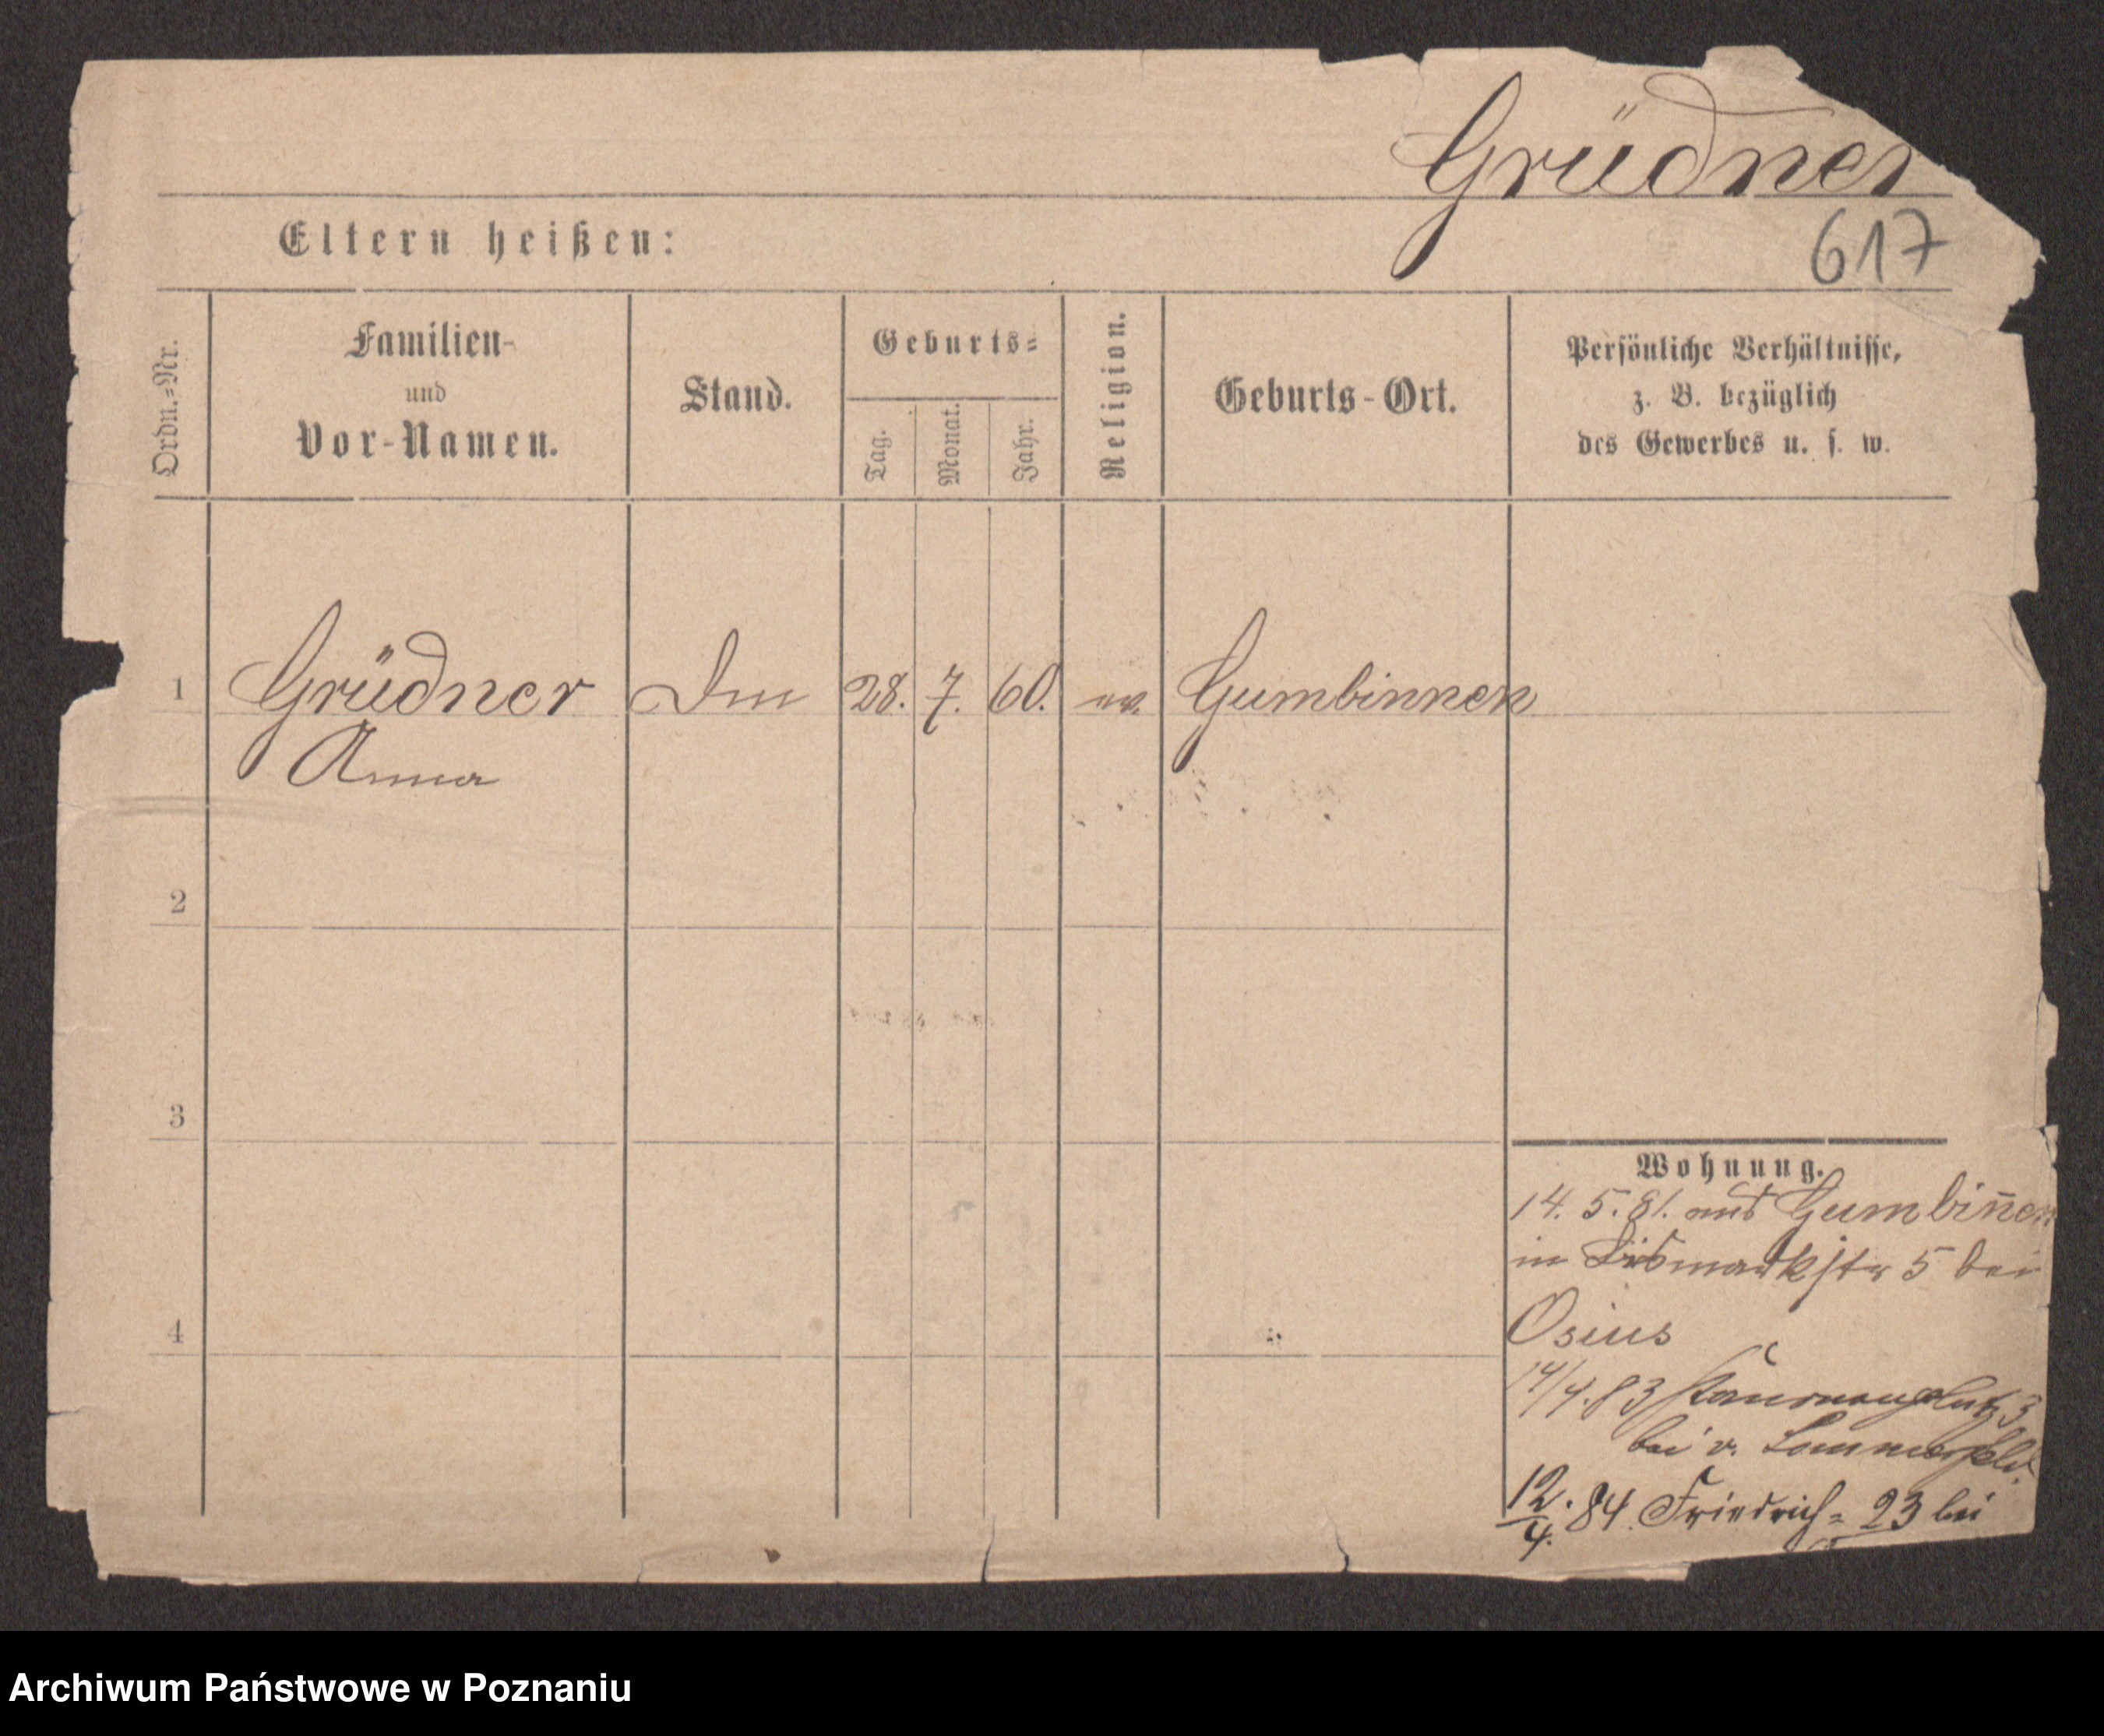 Grüdner
617
Eltern heißen:
Ordn.=Nr.
Familien-
und
Vor-Namen.
Stand.
Geburts=
Tag.
Monat.
Jahr.
Religion.
Geburts-Ort.
Persönliche Verhältnisse,
z. B. bezüglich
des Gewerbes u. s. w.
1 Grüdner 28. 7. 60. ev. Gumbinnen
Anna
2
3
4
Wohnung.
14. 5. 81. aus Gumbin̄en
in Bismarkstr 5 bei
Osius
14/4.83 3
bei v.
12/4. 84. Friedrich= 23 bei
Archiwum Państwowe w Poznaniu